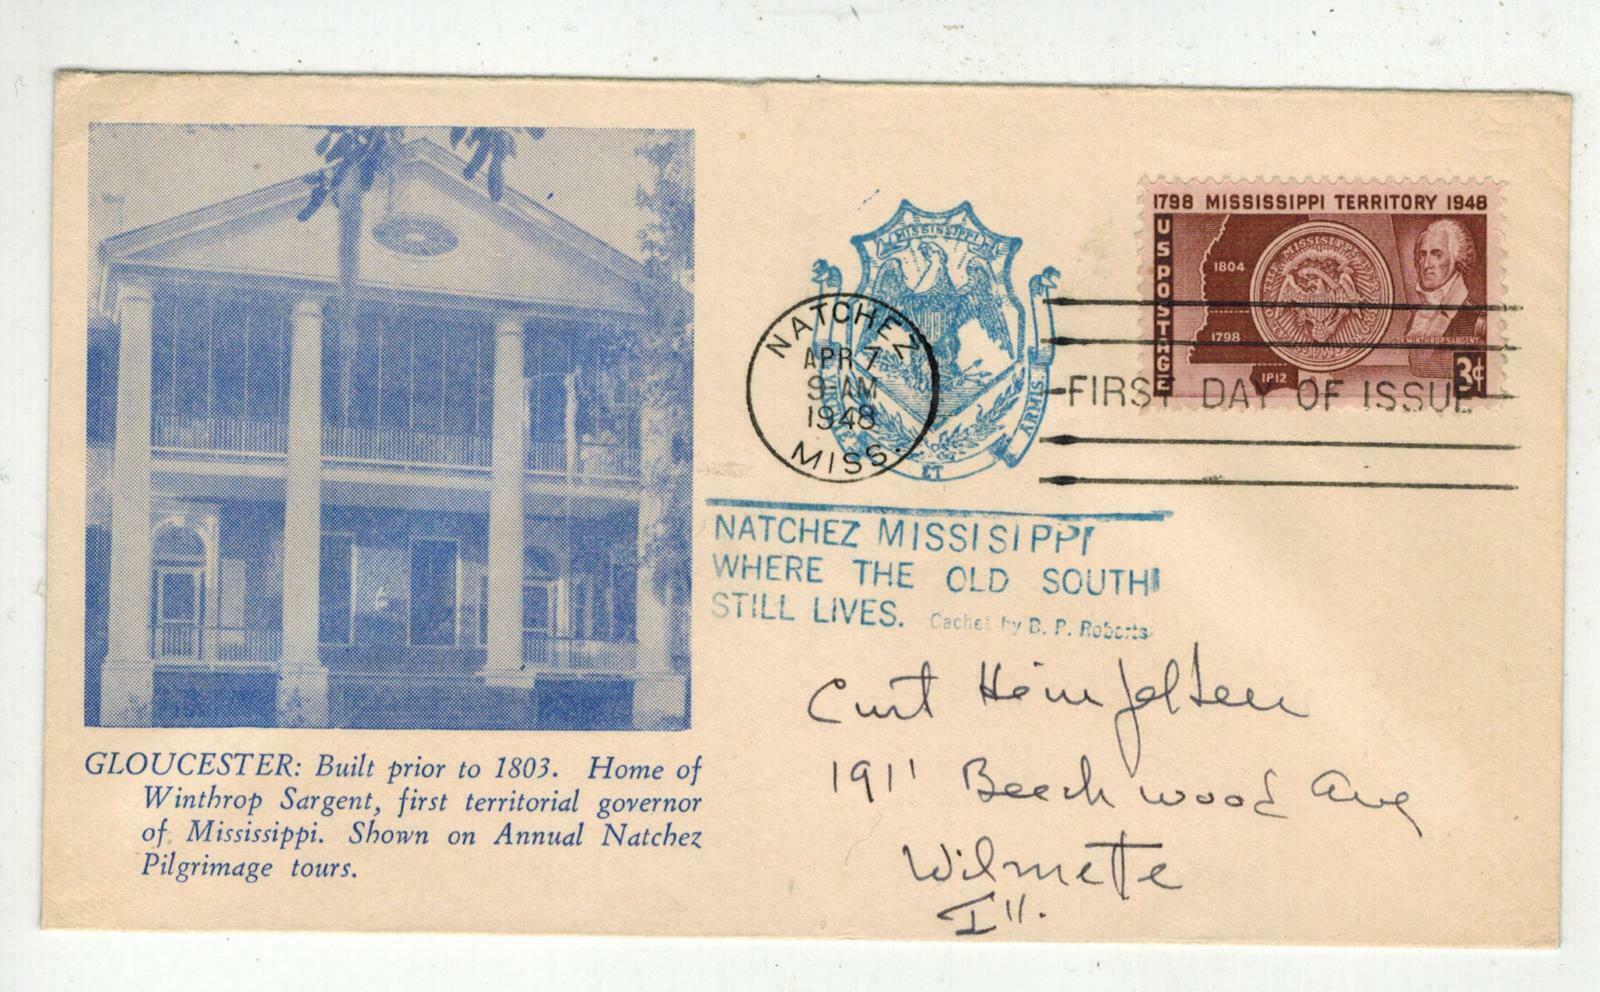 GLOUCESTER: Built prior to 1803. Home of
Winthrop Sargent, first territorial governor
of Mississippi. Shown on Annual Natchez
Pilgrimage tours.
MISSISSIPPI
ET
NATCHEZ
APR 7
9-AM
1948
MISS.
1798 MISSISSIPPI TERRITORY 1948
US POSTAGE
1804
1798
1812
GOV. WINTHROP SARGENT
3¢
FIRST DAY OF ISSUE
NATCHEZ MISSISIPPI
WHERE THE OLD SOUTH
STILL LIVES. Cachet by B. P. Roberts
Curt
1911 Beechwood Ave
Wilmette
Ill.